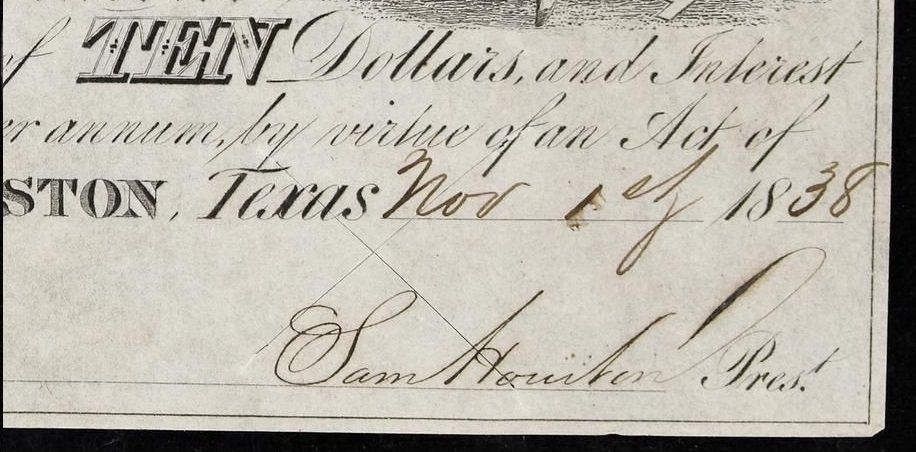 of TEN Dollars, and Interest
er annum, by virtue of an Act of
STON, Texas Nov 1st 1838
Sam Houston Prest.